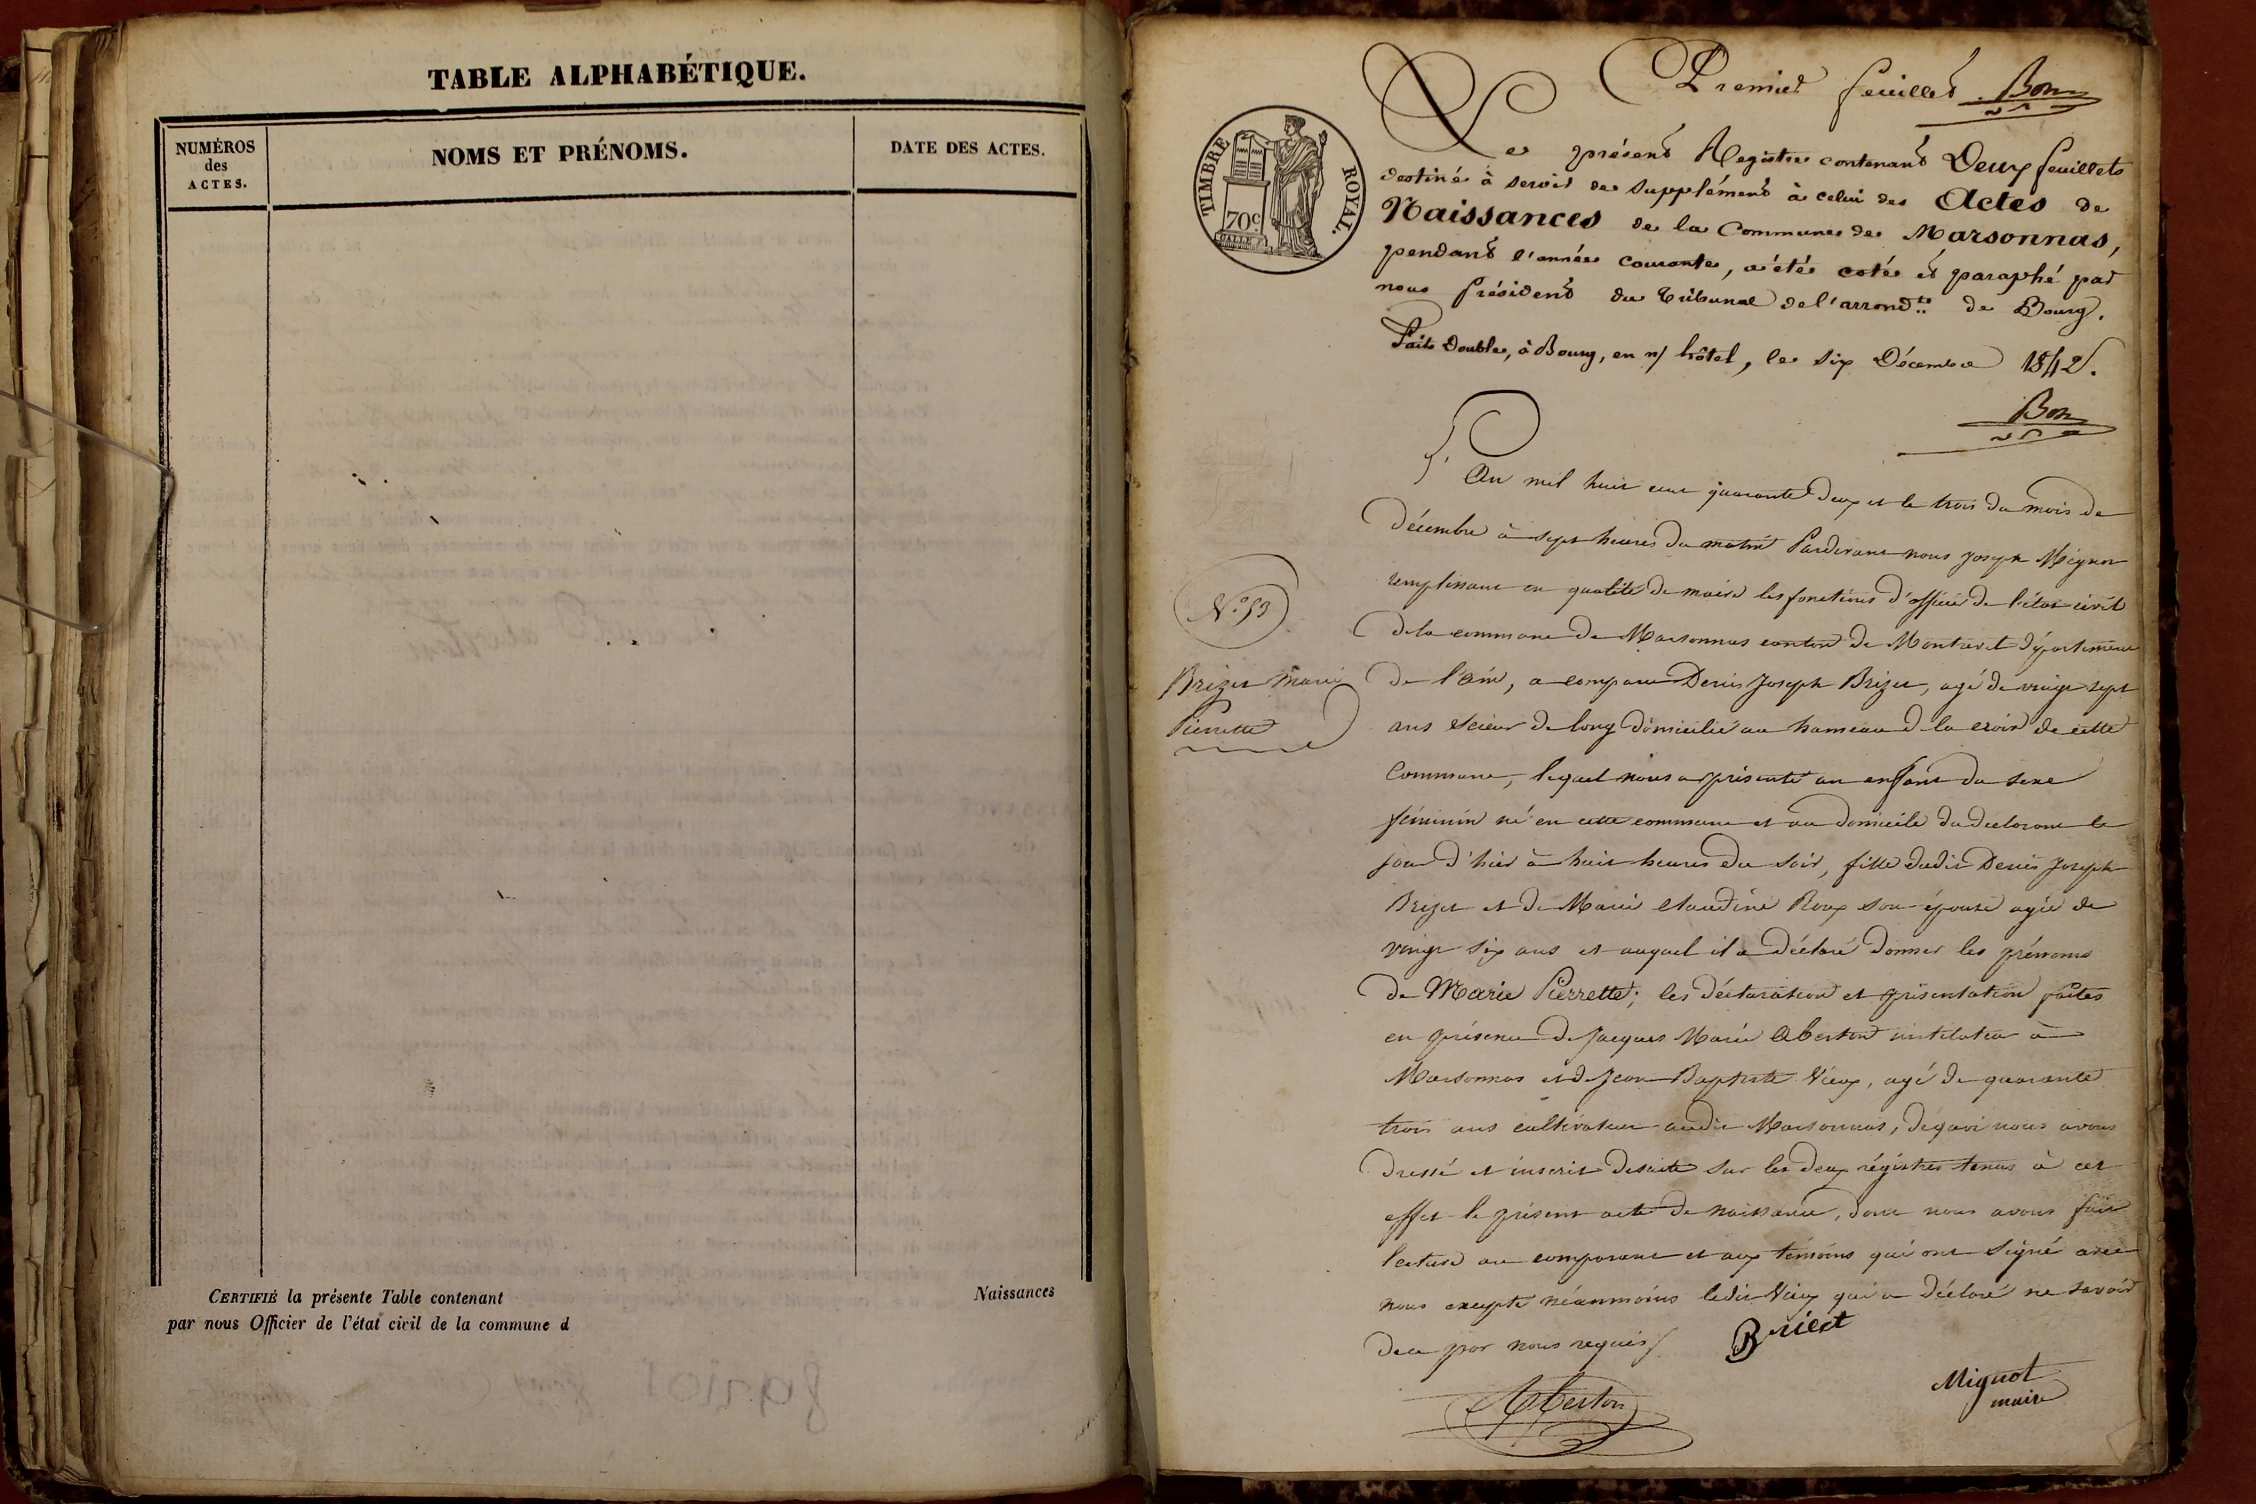 TABLE ALPHABÉTIQUE.
NUMÉROS
des
ACTES.
NOMS ET PRÉNOMS.
DATE DES ACTES.
CERTIFIÉ la présente Table contenant
Naissances
par nous Officier de l'état civil de la commune d
Premier feuillet Bon
TIMBRE ROYAL.
70c
Le présent Registre contenant Deux feuillets
destiné à servir de supplément à celui des Actes de
Naissances de la Commune de Marsonnas,
pendant l'année courante, a été coté et paraphé par
nous Président du Tribunal de l'arrond.t de Bourg.
Fait Double, à Bourg, en n/ hôtel, le six Décembre 1842.
Bon
L'An mil huit cent quarante deux et le trois du mois de
Décembre à sept heures du matin Pardevant nous Joseph Mignot
remplissant en qualité de maire les fonctions d'officier de l'état civil
de la commune de Marsonnas canton de Montrevel département
N.o 53
Brizet Marie
Pierrette
de l'Ain, a comparu Denis Joseph Brizet, agé de vingt sept
ans scieur de long domicilié au hameau d la croix de cette
Commune, lequel nous a présenté un enfant du sexe
féminin né en cette commune et au domicile du declarant le
jour d'hier à huit heures du soir, fille dudit Denis Joseph
Brizet et de Marie Claudine Roux son épouse agée de
vingt six ans et auquel il a déclaré donner les prénoms
de Marie Pierrette; les déclaration et présentation faites
en présence de Jacques Marie Alberton instituteur à
Marsonnas et de Jean Baptiste Vieux, agé de quarante
trois ans cultivateur audit Marsonnas, de quoi nous avons
dressé et inscrit desuite sur les deux régistres tenus à cet
effet le présent acte de naissance, dont nous avons fait
lecture au comparant et aux témoins qui ont signé avec
nous excepté néanmoins ledit Vieux qui a déclaré ne savoir
de ce par nous requis
Briset
Mignot
maire
Alberton